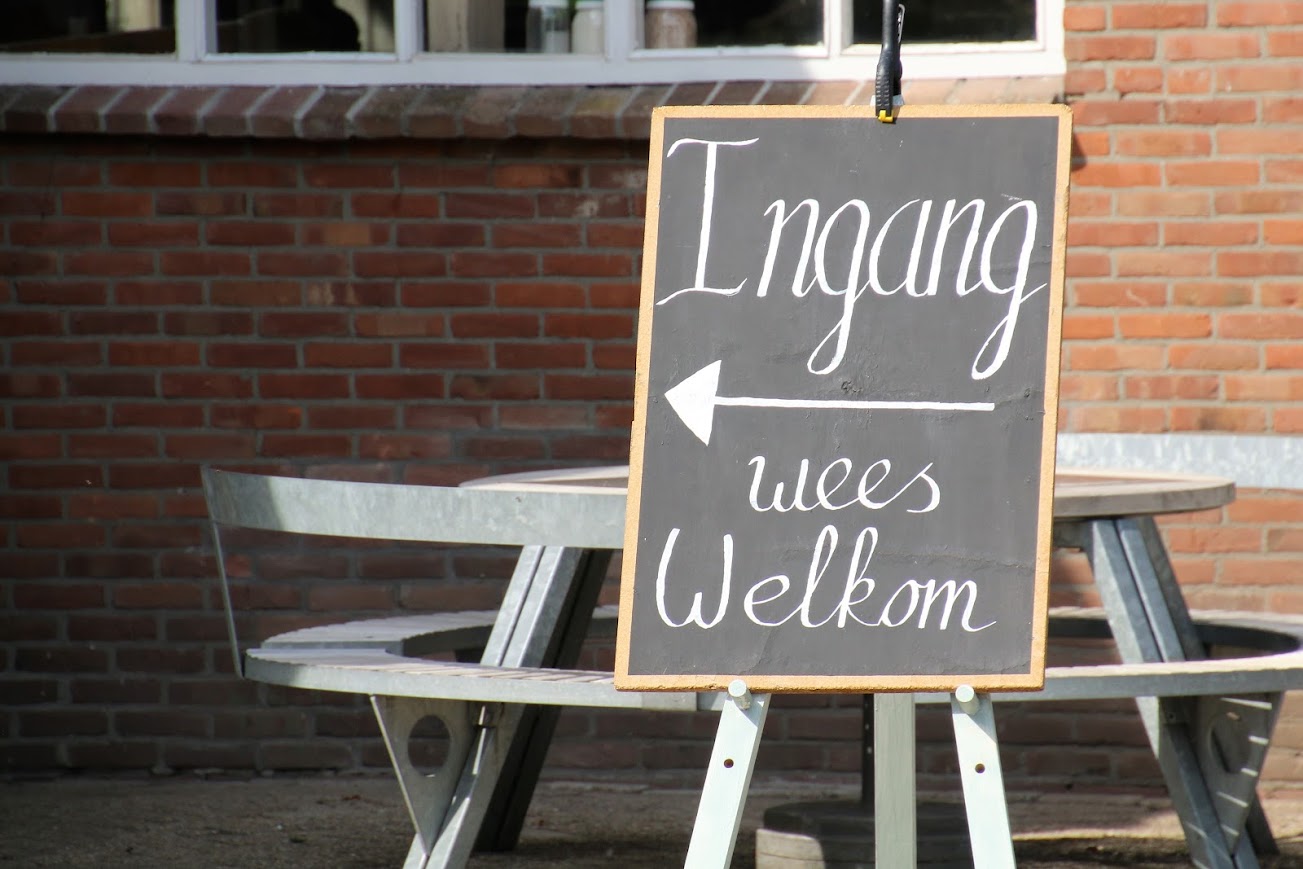 Ingang
wees
Welkom